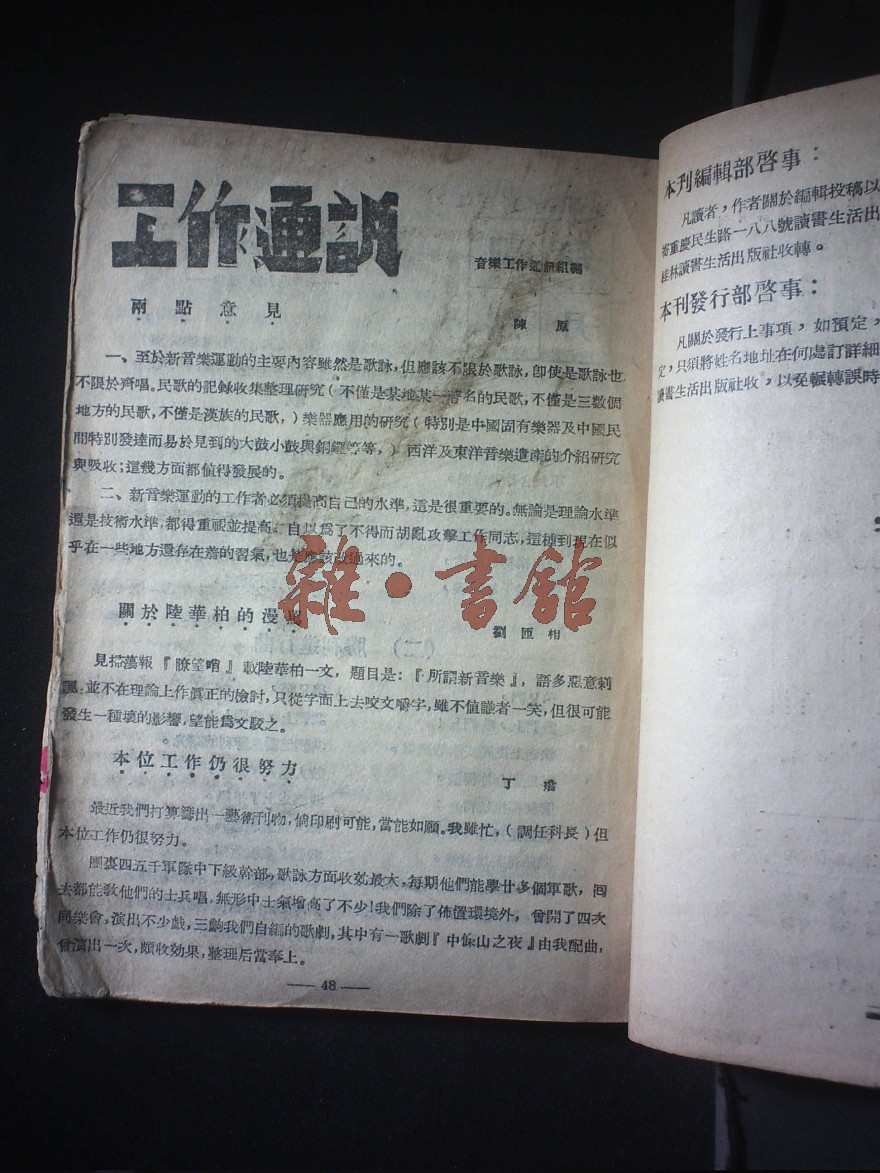 工作通訊
音樂工作通訊組編
兩點意見
陳原
一、至於新音樂運動的主要內容雖然是歌詠,但應該不限於歌詠,卽使是歌詠也
不限於齊唱。民歌的記錄收集整理研究(不僅是某地某一著名的民歌,不僅是三數個
地方的民歌,不僅是漢族的民歌,)樂器應用的研究(特別是中國固有樂器及中國民
間特別發達而易於見到的大鼓小鼓與銅鑼等等,)西洋及東洋音樂遺南的介紹研究
與吸收;這幾方面都值得發展的。
二、新音樂運動的工作者必須提高自己的水準,這是很重要的。無論是理論水準
還是技術水準,都得重視並提高。自以爲了不得而胡亂攻擊工作同志,這種到現在似
乎在一些地方還存在着的習氣,也是應該改過來的。
雜·書館
關於陸華柏的漫
劉匝相
見掃蕩報『瞭望哨』載陸華柏一文,題目是:『所謂新音樂』,語多惡意譏
諷,並不在理論上作眞正的檢討,只從字面上去咬文嚼字,雖不值識者一笑,但很可能
發生一種壞的影響,望能爲文駁之。
本位工作仍很努力
丁
最近我們打算籌出一藝術刊物,倘印刷可能,當能如願。我雖忙,(調任科長)但
本位工作仍很努力。
團裏四五千軍隊中下級幹部,歌詠方面收效最大,每期他們能學廿多個軍歌,囘
去都能敎他們的士兵唱,無形中士氣增高了不少!我們除了佈置環境外,曾開了四次
同樂會,演出不少戲,三齣我們自編的歌劇,其中有一歌劇『中條山之夜』由我配曲,
曾演出一次,頗收效果,整理后當奉上。
— 48 —
本刊編輯部啓事:
凡讀者,作者關於編輯投稿以
寄重慶民生路一八八號讀書生活出
桂林讀書生活出版社收轉。
本刊發行部啓事:
凡關於發行上事項,如預定,
定,只須將姓名地址在何處訂詳細
讀書生活出版社收,以免輾轉誤時